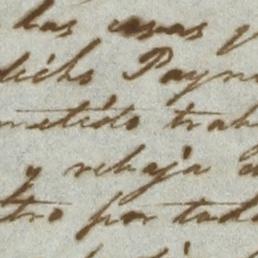 las casas y
dicho Payn
metido trab
y rebaja
tro por tod